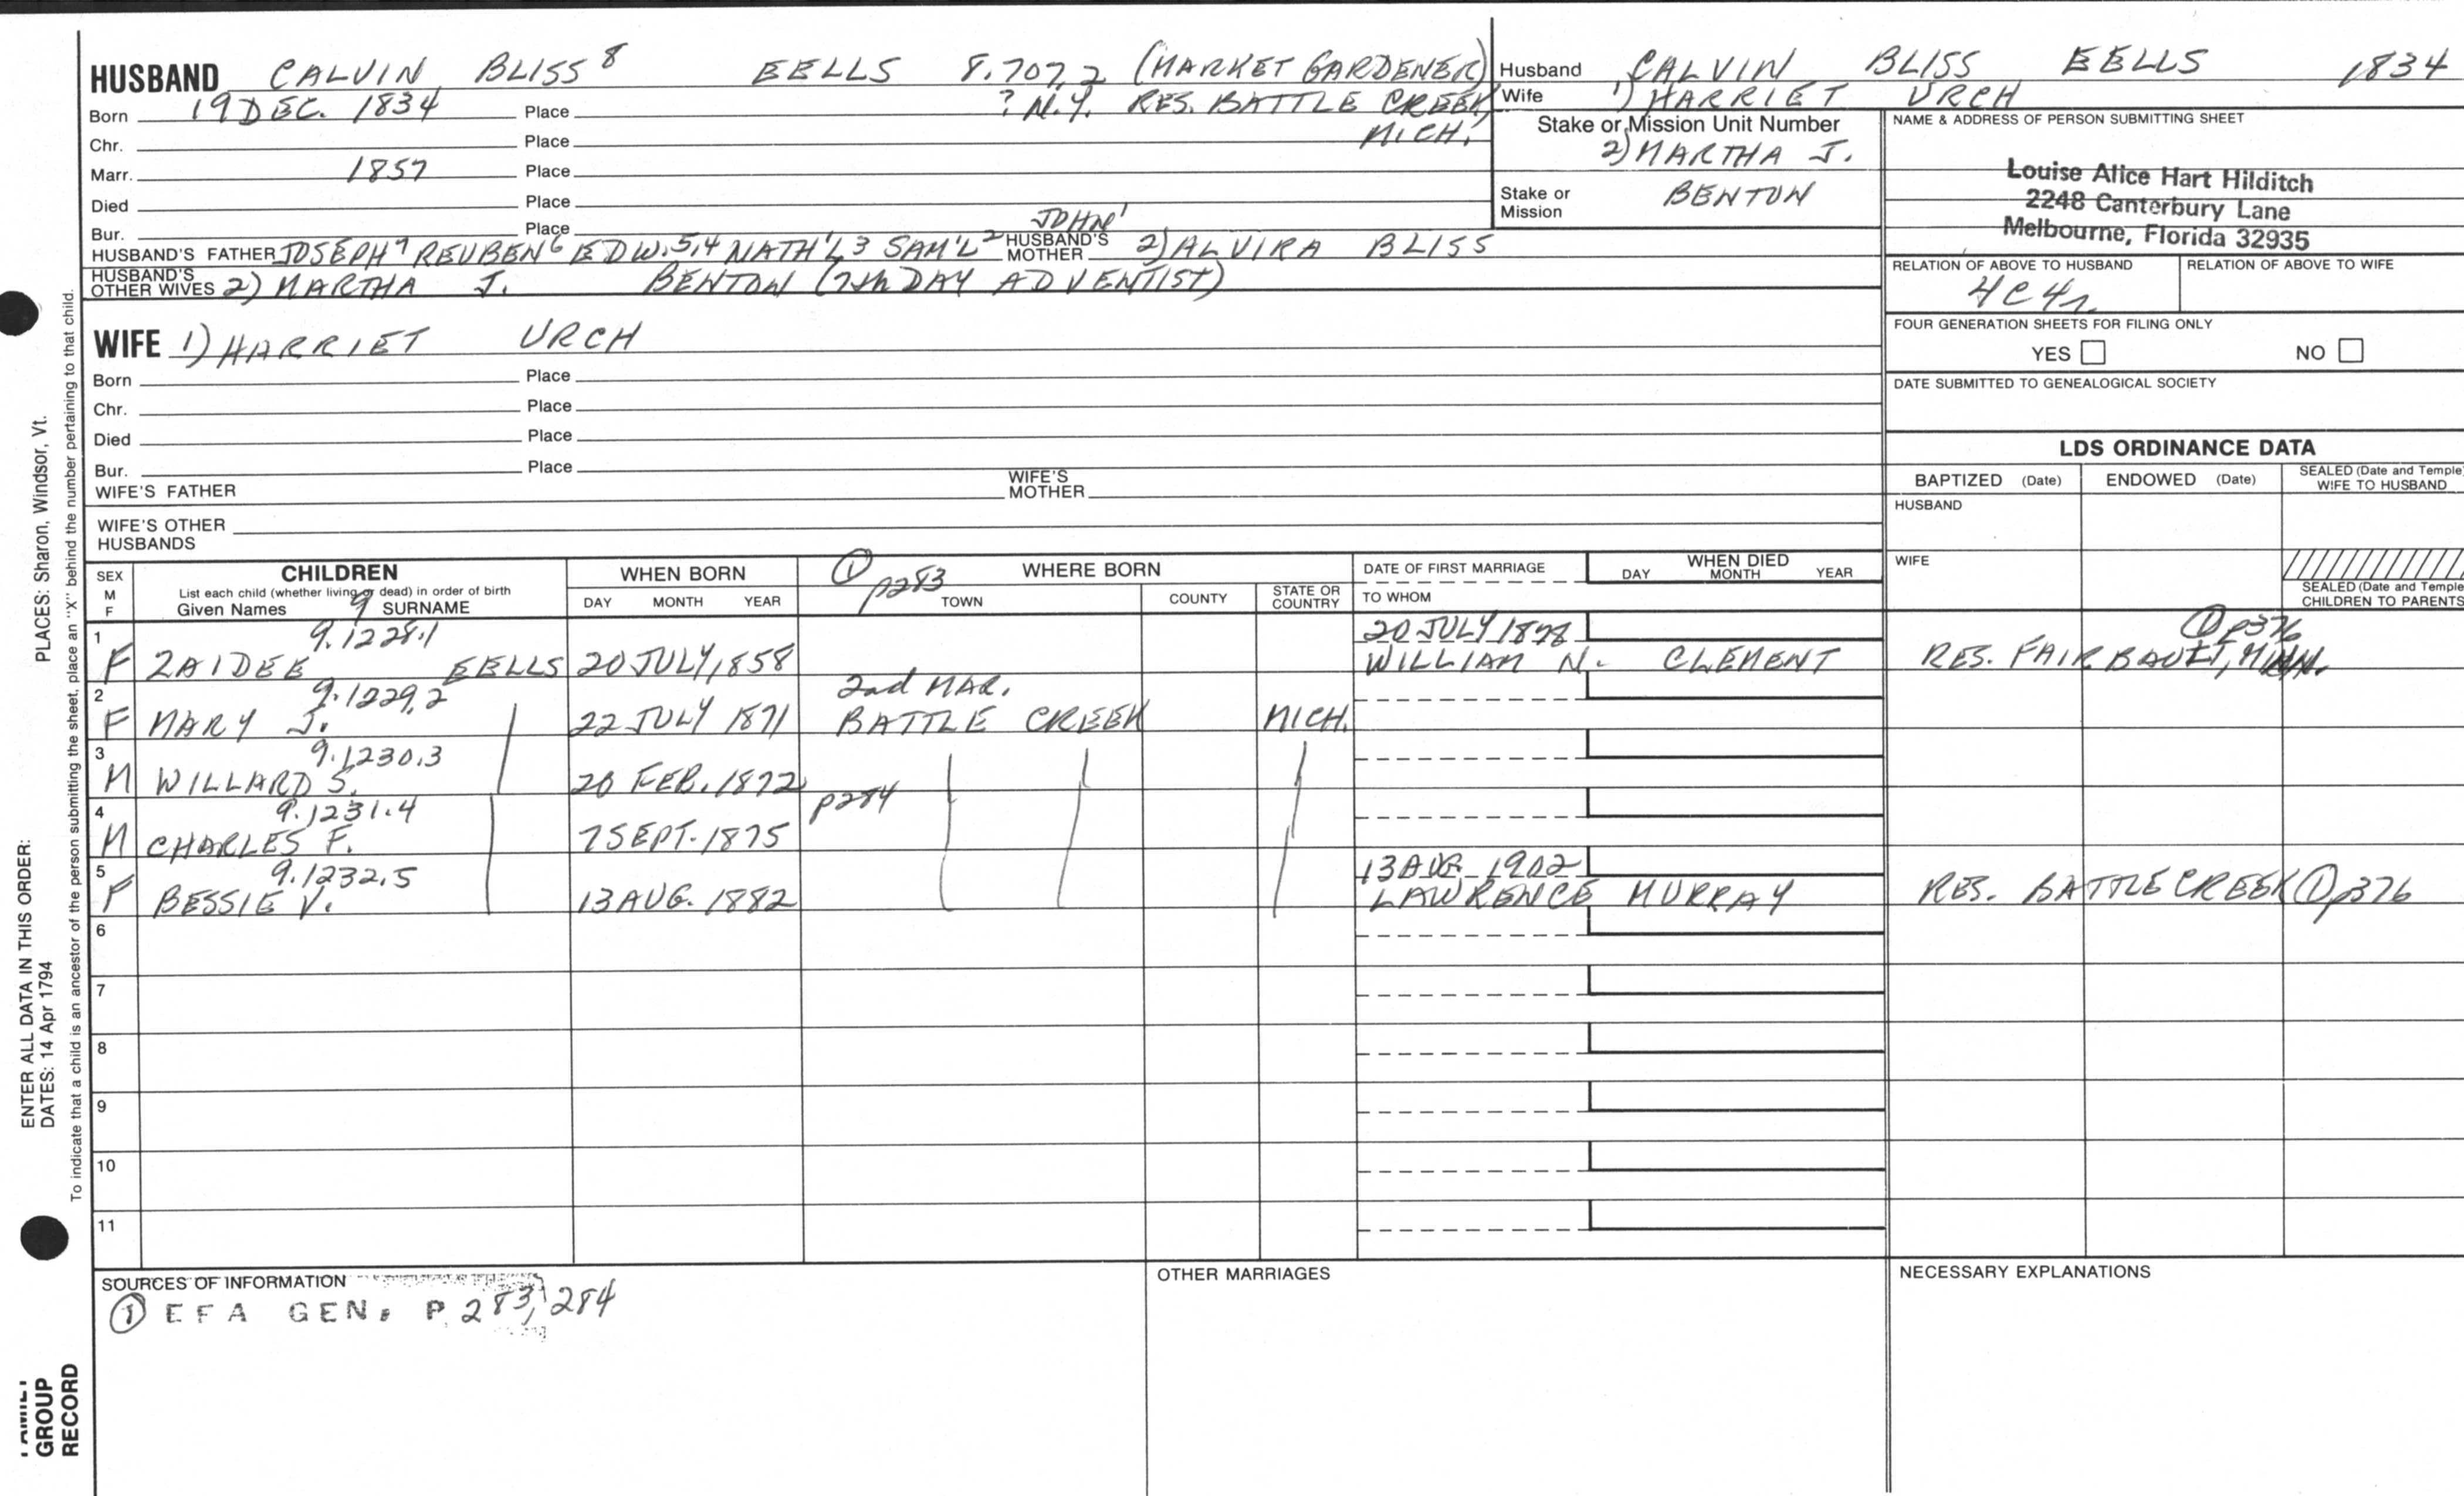 HUSBAND CALVIN BLISS 8 EELLS 8.707,2 (MARKET GARDENER)
Born 19 DEC. 1834 Place ? N.Y. RES. BATTLE CREEK,
Chr. Place MICH.
Marr. 1857 Place
Died Place
Bur. Place JOHN 1
HUSBAND'S FATHER JOSEPH 7 REUBEN 6 EDW. 5,4 NATH'L 3 SAM'L 2 HUSBAND'S MOTHER 2) ALVIRA BLISS
HUSBAND'S OTHER WIVES 2) MARTHA J. BENTON (7th DAY ADVENTIST)
WIFE 1) HARRIET URCH
Born Place
Chr. Place
Died Place
Bur. Place
WIFE'S FATHER WIFE'S MOTHER
WIFE'S OTHER HUSBANDS
Husband CALVIN BLISS EELLS 1834
Wife 1) HARRIET URCH
Stake or Mission Unit Number
2) MARTHA J.
Stake or Mission BENTON
NAME & ADDRESS OF PERSON SUBMITTING SHEET
Louise Alice Hart Hilditch
2248 Canterbury Lane
Melbourne, Florida 32935
RELATION OF ABOVE TO HUSBAND RELATION OF ABOVE TO WIFE
4C4r
FOUR GENERATION SHEETS FOR FILING ONLY
YES NO
DATE SUBMITTED TO GENEALOGICAL SOCIETY
LDS ORDINANCE DATA
BAPTIZED (Date) ENDOWED (Date) SEALED (Date and Temple) WIFE TO HUSBAND
HUSBAND
WIFE
SEALED (Date and Temple) CHILDREN TO PARENTS
SEX M F CHILDREN
List each child (whether living or dead) in order of birth
Given Names 9 SURNAME
WHEN BORN
DAY MONTH YEAR
① p283 WHERE BORN
TOWN COUNTY STATE OR COUNTRY
DATE OF FIRST MARRIAGE
TO WHOM
WHEN DIED
DAY MONTH YEAR
1 9.1228.1 20 JULY 1878 ① p376
F ZAIDEE EELLS 20 JULY, 1858 WILLIAM N. CLEMENT RES. FAIRBAULT, MINN.
2 9.1229,2 2nd MAR.
F MARY J. 22 JULY 1871 BATTLE CREEK MICH.
3 9.1230.3
M WILLARD S. 20 FEB. 1872
4 9.1231.4 p284
M CHARLES F. 7 SEPT. 1875
5 9.1232.5 13 AUG. 1902
F BESSIE V. 13 AUG. 1882 LAWRENCE MURRAY RES. BATTLE CREEK ① p376
6
7
8
9
10
11
SOURCES OF INFORMATION
① EFA GEN. P 283, 284
OTHER MARRIAGES
NECESSARY EXPLANATIONS
ENTER ALL DATA IN THIS ORDER:
DATES: 14 Apr 1794 PLACES: Sharon, Windsor, Vt.
To indicate that a child is an ancestor of the person submitting the sheet, place an "X" behind the number pertaining to that child.
FAMILY
GROUP
RECORD